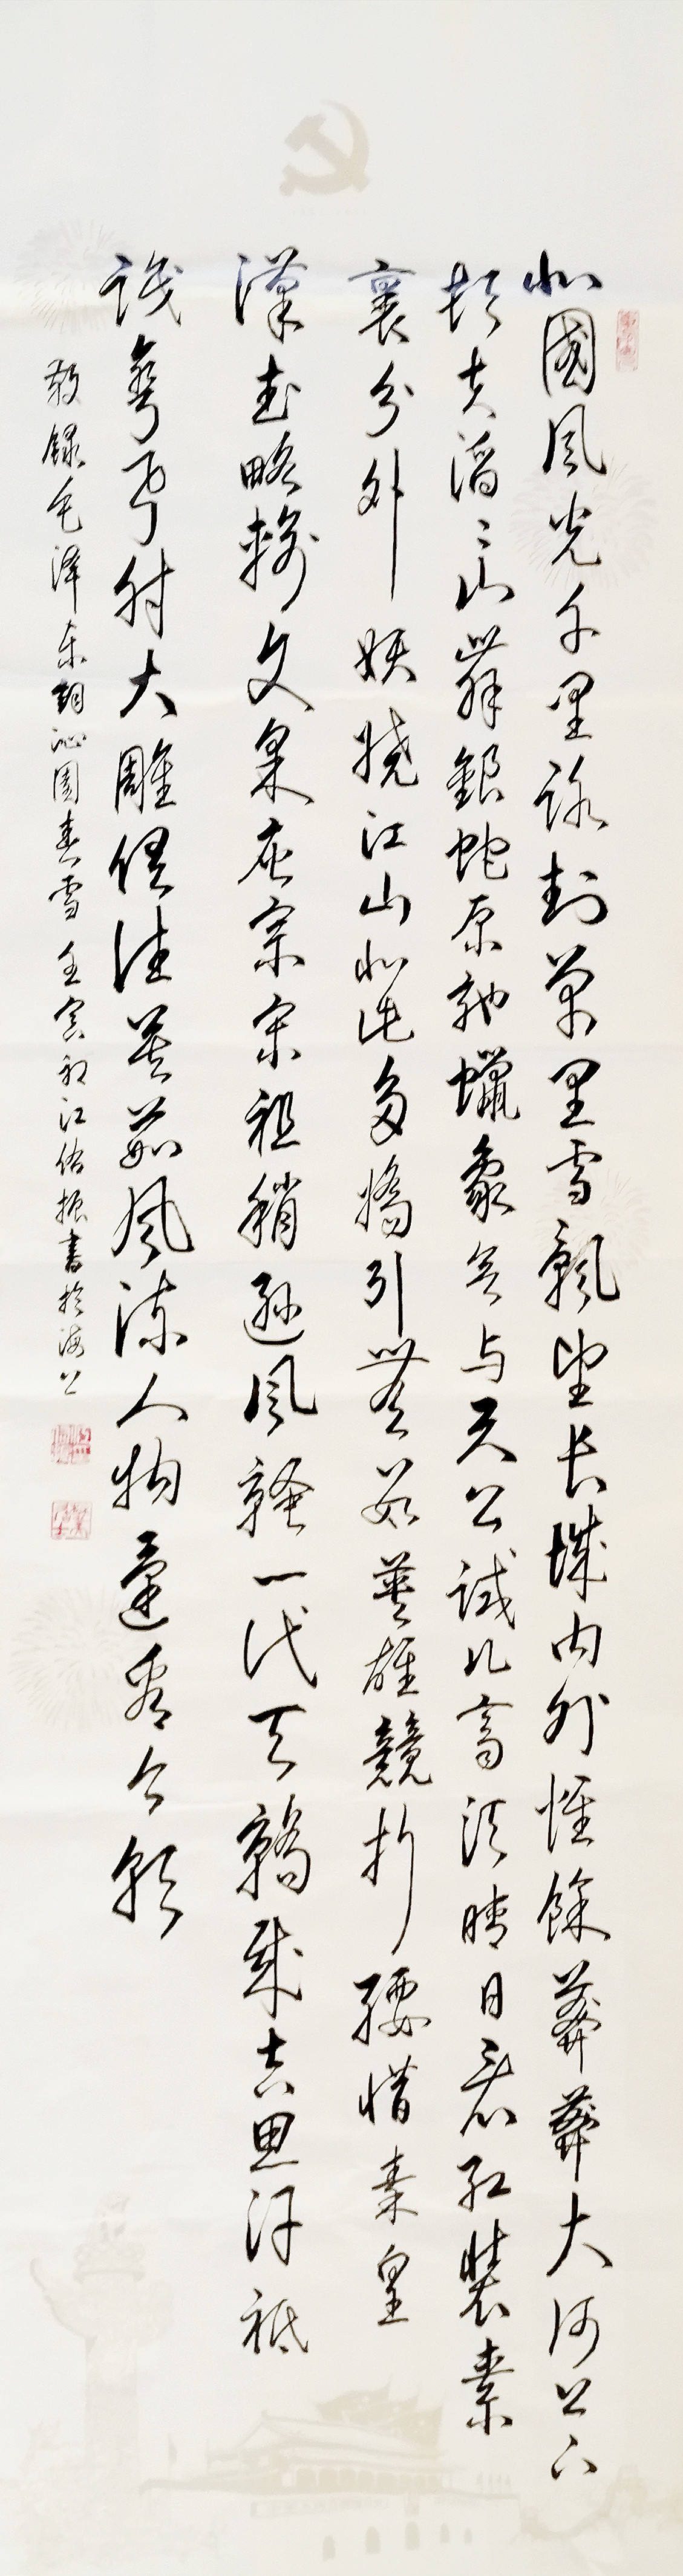 北國風光千里冰封萬里雪飄望長城內外惟餘莽莽大河上下
頓失滔ミ山舞銀蛇原馳蠟象欲与天公試比高須晴日看紅裝素
裹分外妖嬈江山如此多嬌引無數英雄競折腰惜秦皇
漢武略輸文采唐宗宋祖稍遜風騷一代天驕成吉思汗祗
識彎弓射大雕俱往矣數風流人物還看今朝
敬録毛澤東詞沁園春雪壬寅初江佑振書於海上